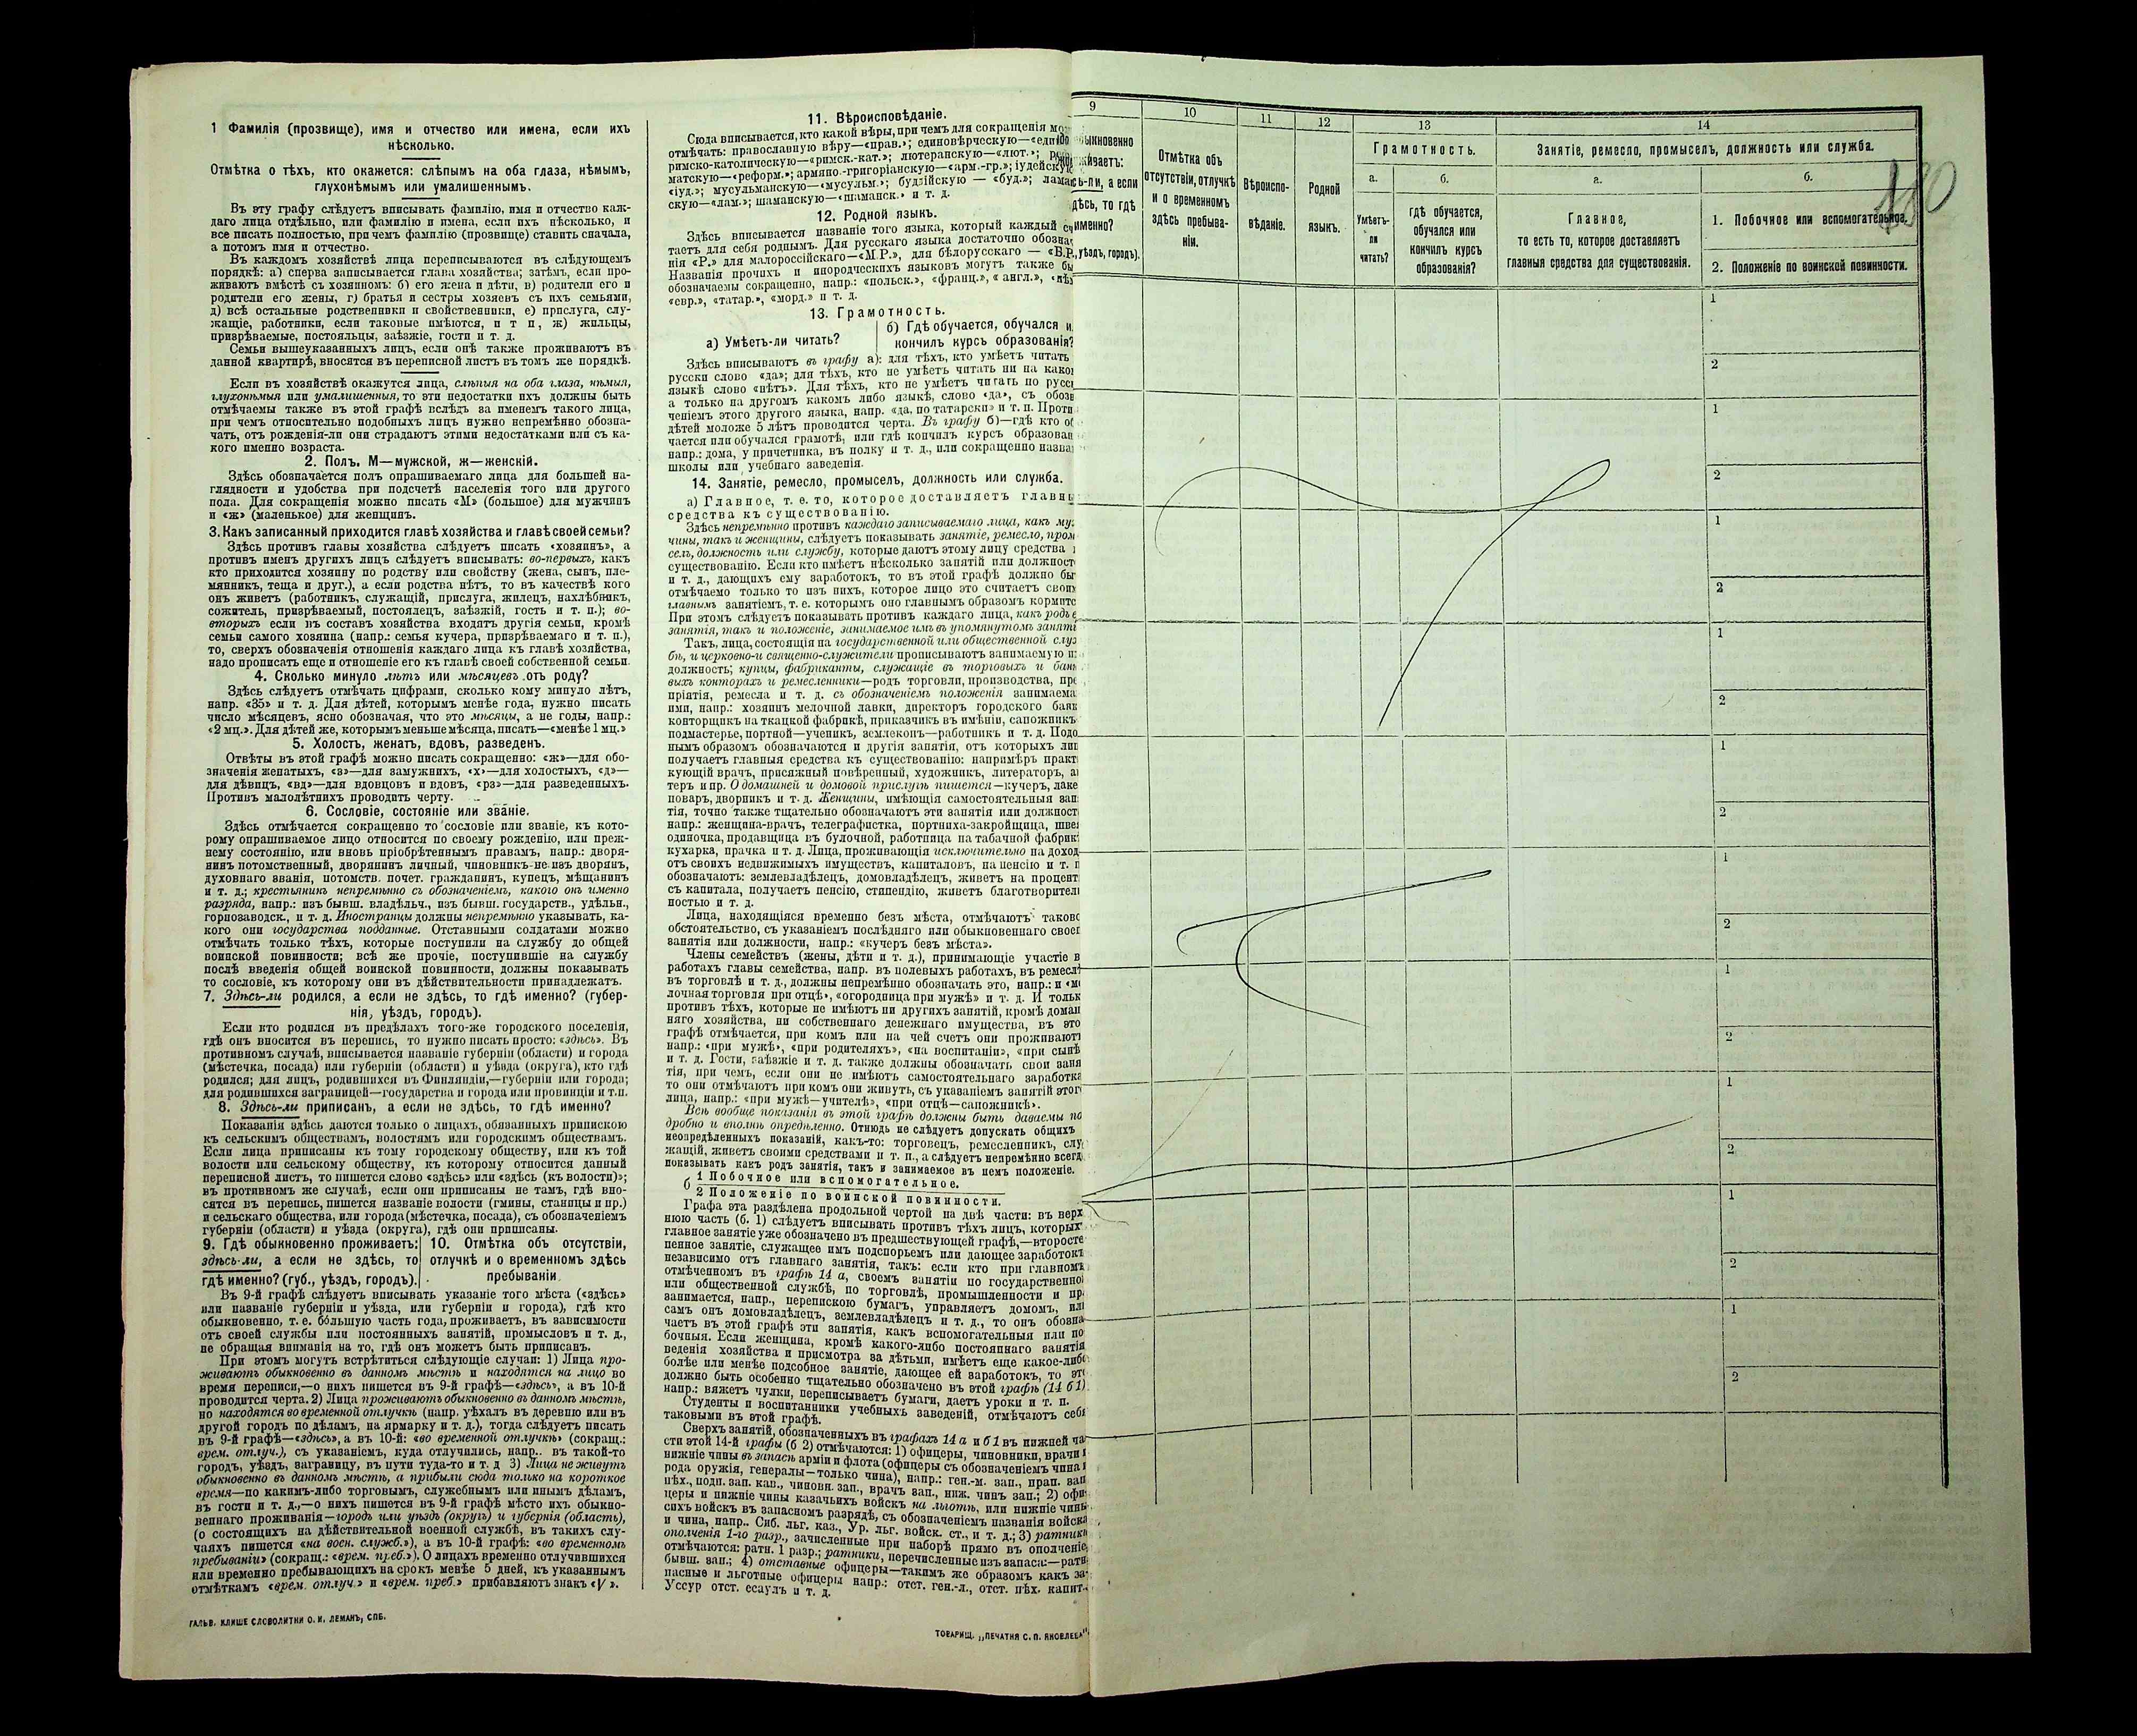 1 Фамилія (прозвище), имя и отчество или имена, если ихъ
нѣсколько.
Отмѣтка о тѣхъ, кто окажется: слѣпымъ на оба глаза, нѣмымъ,
глухонѣмымъ или умалишеннымъ.
Въ эту графу слѣдуетъ вписывать фамилію, имя и отчество каж-
даго лица отдѣльно, или фамилію и имена, если ихъ нѣсколько, и
все писать полностью, при чемъ фамилію (прозвище) ставить сначала,
а потомъ имя и отчество.
Въ каждомъ хозяйствѣ лица переписываются въ слѣдующемъ
порядкѣ: а) сперва записывается глава хозяйства; затѣмъ, если про-
живаютъ вмѣстѣ съ хозяиномъ: б) его жена и дѣти, в) родители его и
родители его жены, г) братья и сестры хозяевъ съ ихъ семьями,
д) всѣ остальные родственники и свойственники, е) прислуга, слу-
жащіе, работники, если таковые имѣются, и т п, ж) жильцы,
призрѣваемые, постояльцы, заѣзжіе, гости и т. д.
Семьи вышеуказанныхъ лицъ, если онѣ также проживаютъ въ
данной квартирѣ, вносятся въ переписной листъ въ томъ же порядкѣ.
Если въ хозяйствѣ окажутся лица, слѣпыя на оба глаза, нѣмыя,
глухонѣмыя или умалишенныя, то эти недостатки ихъ должны быть
отмѣчаемы также въ этой графѣ вслѣдъ за именемъ такого лица,
при чемъ относительно подобныхъ лицъ нужно непремѣнно обозна-
чать, отъ рожденія-ли они страдаютъ этими недостатками или съ ка-
кого именно возраста.
2. Полъ. М—мужской, ж—женскій.
Здѣсь обозначается полъ опрашиваемаго лица для большей на-
глядности и удобства при подсчетѣ населенія того или другого
пола. Для сокращенія можно писать «М» (большое) для мужчинъ
и «ж» (маленькое) для женщинъ.
3. Какъ записанный приходится главѣ хозяйства и главѣ своей семьи?
Здѣсь противъ главы хозяйства слѣдуетъ писать «хозяинъ», а
противъ именъ другихъ лицъ слѣдуетъ вписывать: во-первыхъ, какъ
кто приходится хозяину по родству или свойству (жена, сынъ, пле-
мянникъ, теща и друг.), а если родства нѣтъ, то въ качествѣ кого
онъ живетъ (работникъ, служащій, прислуга, жилецъ, нахлѣбникъ,
сожитель, призрѣваемый, постоялецъ, заѣзжій, гость и т. п.); во-
вторыхъ если въ составъ хозяйства входятъ другія семьи, кромѣ
семьи самого хозяина (напр.: семья кучера, призрѣваемаго и т. п.),
то, сверхъ обозначенія отношенія каждаго лица къ главѣ хозяйства,
надо прописать еще и отношеніе его къ главѣ своей собственной семьи.
4. Сколько минуло лѣтъ или мѣсяцевъ отъ роду?
Здѣсь слѣдуетъ отмѣчать цифрами, сколько кому минуло лѣтъ,
напр. «35» и т. д. Для дѣтей, которымъ менѣе года, нужно писать
число мѣсяцевъ, ясно обозначая, что это мѣсяцы, а не годы, напр.:
«2 мц.». Для дѣтей же, которымъ меньше мѣсяца, писать—«менѣе 1 мц.»
5. Холостъ, женатъ, вдовъ, разведенъ.
Отвѣты въ этой графѣ можно писать сокращенно: «ж»—для обо-
значенія женатыхъ, «з»—для замужнихъ, «х»—для холостыхъ, «д»—
для дѣвицъ, «вд»—для вдовцовъ и вдовъ, «рз»—для разведенныхъ.
Противъ малолѣтнихъ проводить черту.
6. Сословіе, состояніе или званіе.
Здѣсь отмѣчается сокращенно то сословіе или званіе, къ кото-
рому опрашиваемое лицо относится по своему рожденію, или преж-
нему состоянію, или вновь пріобрѣтеннымъ правамъ, напр.: дворя-
нинъ потомственный, дворянинъ личный, чиновникъ-не-изъ дворянъ,
духовнаго званія, потомств. почет. гражданинъ, купецъ, мѣщанинъ
и т. д.; крестьянинъ непремѣнно съ обозначеніемъ, какого онъ именно
разряда, напр.: изъ бывш. владѣльч., изъ бывш. государств., удѣльн.,
горнозаводск., и т. д. Иностранцы должны непремѣнно указывать, ка-
кого они государства подданные. Отставными солдатами можно
отмѣчать только тѣхъ, которые поступили на службу до общей
воинской повинности; всѣ же прочіе, поступившіе на службу
послѣ введенія общей воинской повинности, должны показывать
то сословіе, къ которому они въ дѣйствительности принадлежатъ.
7. Здѣсь-ли родился, а если не здѣсь, то гдѣ именно? (губер-
нія, уѣздъ, городъ).
Если кто родился въ предѣлахъ того-же городского поселенія,
гдѣ онъ вносится въ перепись, то нужно писать просто: «здѣсь». Въ
противномъ случаѣ, вписывается названіе губерніи (области) и города
(мѣстечка, посада) или губерніи (области) и уѣзда (округа), кто гдѣ
родился; для лицъ, родившихся въ Финляндіи,—губерніи или города;
для родившихся заграницей—государства и города или провинціи и т.п.
8. Здѣсь-ли приписанъ, а если не здѣсь, то гдѣ именно?
Показанія здѣсь даются только о лицахъ, обязанныхъ припискою
къ сельскимъ обществамъ, волостямъ или городскимъ обществамъ.
Если лица приписаны къ тому городскому обществу, или къ той
волости или сельскому обществу, къ которому относится данный
переписной листъ, то пишется слово «здѣсь» или «здѣсь (къ волости)»;
въ противномъ же случаѣ, если они приписаны не тамъ, гдѣ вно-
сятся въ перепись, пишется названіе волости (гмины, станицы и пр.)
и сельскаго общества, или города (мѣстечка, посада), съ обозначеніемъ
губерніи (области) и уѣзда (округа), гдѣ они приписаны.
9. Гдѣ обыкновенно проживаетъ:
здѣсь-ли, а если не здѣсь, то
гдѣ именно? (губ., уѣздъ, городъ).
10. Отмѣтка объ отсутствіи,
отлучкѣ и о временномъ здѣсь
пребываніи.
Въ 9-й графѣ слѣдуетъ вписывать указаніе того мѣста («здѣсь»
или названіе губерніи и уѣзда, или губерніи и города), гдѣ кто
обыкновенно, т. е. бо́льшую часть года, проживаетъ, въ зависимости
отъ своей службы или постоянныхъ занятій, промысловъ и т. д.,
не обращая вниманія на то, гдѣ онъ можетъ быть приписанъ.
При этомъ могутъ встрѣтиться слѣдующіе случаи: 1) Лица про-
живаютъ обыкновенно въ данномъ мѣстѣ и находятся на лицо во
время переписи,—о нихъ пишется въ 9-й графѣ—«здѣсь», а въ 10-й
проводится черта. 2) Лица проживаютъ обыкновенно въ данномъ мѣстѣ,
но находятся во временной отлучкѣ (напр. уѣхалъ въ деревню или въ
другой городъ по дѣламъ, на ярмарку и т. д.), тогда слѣдуетъ писать
въ 9-й графѣ—«здѣсь», а въ 10-й: «во временной отлучкѣ» (сокращ.:
врем. отлуч.), съ указаніемъ, куда отлучились, напр.. въ такой-то
городъ, уѣздъ, заграницу, въ пути туда-то и т. д 3) Лица не живутъ
обыкновенно въ данномъ мѣстѣ, а прибыли сюда только на короткое
время—по какимъ-либо торговымъ, служебнымъ или инымъ дѣламъ,
въ гости и т. д.,—о нихъ пишется въ 9-й графѣ мѣсто ихъ обыкно-
веннаго проживанія—городъ или уѣздъ (округъ) и губернія (область),
(о состоящихъ на дѣйствительной военной службѣ, въ такихъ слу-
чаяхъ пишется «на воен. служб.»), а въ 10-й графѣ: «во временномъ
пребываніи» (сокращ.: «врем. преб.»). О лицахъ временно отлучившихся
или временно пребывающихъ на срокъ менѣе 5 дней, къ указаннымъ
отмѣткамъ «врем. отлуч.» и «врем. преб.» прибавляютъ знакъ «V».
ГАЛЬВ. КЛИШЕ СЛОВОЛИТНИ О. И. ЛЕМАНЪ, СПБ.
11. Вѣроисповѣданіе.
Сюда вписывается, кто какой вѣры, при чемъ для сокращенія мо
отмѣчать: православную вѣру—«прав.»; единовѣрческую—«един
римско-католическую—«римск.-кат.»; лютеранскую—«лют.»; ре
матскую—«реформ.»; армяно.-григоріанскую—«арм.-гр.»; іудейскую
«іуд.»; мусульманскую—«мусульм.»; буддійскую — «буд.»; ламаи
скую—«лам.»; шаманскую—«шаманск.» и т. д.
12. Родной языкъ.
Здѣсь вписывается названіе того языка, который каждый сч
таетъ для себя роднымъ. Для русскаго языка достаточно обозна
нія «Р.» для малороссійскаго—«М.Р.», для бѣлорусскаго — «Б.Р.
Названія прочихъ и инородческихъ языковъ могутъ также бы
обозначаемы сокращенно, напр.: «польск.», «франц.», «англ.», «нѣм
«евр.», «татар.», «морд.» и т. д.
13. Грамотность.
а) Умѣетъ-ли читать?
б) Гдѣ обучается, обучался и
кончилъ курсъ образованія?
Здѣсь вписываютъ въ графу а): для тѣхъ, кто умѣетъ читать
русски слово «да»; для тѣхъ, кто не умѣетъ читать ни на како
языкѣ слово «нѣтъ». Для тѣхъ, кто не умѣетъ читать по русс
а только на другомъ какомъ либо языкѣ, слово «да», съ обозн
ченіемъ этого другого языка, напр. «да, по татарски» и т. п. Проти
дѣтей моложе 5 лѣтъ проводится черта. Въ графу б)—гдѣ кто об
чается или обучался грамотѣ, или гдѣ кончилъ курсъ образован
напр.: дома, у причетника, въ полку и т. д., или сокращенно назва
школы или учебнаго заведенія.
14. Занятіе, ремесло, промыселъ, должность или служба.
а) Главное, т. е. то, которое доставляетъ главны
средства къ существованію.
Здѣсь непремѣнно противъ каждаго записываемаго лица, какъ му
чины, такъ и женщины, слѣдуетъ показывать занятіе, ремесло, пром
селъ, должность или службу, которые даютъ этому лицу средства
существованію. Если кто имѣетъ нѣсколько занятій или должност
и т. д., дающихъ ему заработокъ, то въ этой графѣ должно бы
отмѣчаемо только то изъ нихъ, которое лицо это считаетъ свои
главнымъ занятіемъ, т. е. которымъ оно главнымъ образомъ кормитс
При этомъ слѣдуетъ показывать противъ каждаго лица, какъ родъ е
занятія, такъ и положеніе, занимаемое имъ въ упомянутомъ заняті
Такъ, лица, состоящія на государственной или общественной служ
бѣ, и церковно-и священно-служители прописываютъ занимаемую и
должность; купцы, фабриканты, служащіе въ торговыхъ и банк
выхъ конторахъ и ремесленники—родъ торговли, производства, пре
пріятія, ремесла и т. д. съ обозначеніемъ положенія занимаема
ими, напр.: хозяинъ мелочной лавки, директоръ городского банк
конторщикъ на ткацкой фабрикѣ, приказчикъ въ имѣніи, сапожникъ
подмастерье, портной—ученикъ, землекопъ—работникъ и т. д. Подо
нымъ образомъ обозначаются и другія занятія, отъ которыхъ лиц
получаетъ главныя средства къ существованію: напримѣръ практ
кующій врачъ, присяжный повѣренный, художникъ, литераторъ, а
теръ и пр. О домашней и домовой прислугѣ пишется—кучеръ, лаке
поваръ, дворникъ и т. д. Женщины, имѣющія самостоятельныя зан
тія, точно также тщательно обозначаютъ эти занятія или должност
напр.: женщина-врачъ, телеграфистка, портниха-закройщица, шве
одиночка, продавщица въ булочной, работница на табачной фабрик
кухарка, прачка и т. д. Лица, проживающія исключительно на доход
отъ своихъ недвижимыхъ имуществъ, капиталовъ, на пенсію и т. п
обозначаютъ: землевладѣлецъ, домовладѣлецъ, живетъ на процент
съ капитала, получаетъ пенсію, стипендію, живетъ благотворител
ностью и т. д.
Лица, находящіяся временно безъ мѣста, отмѣчаютъ таково
обстоятельство, съ указаніемъ послѣдняго или обыкновеннаго своег
занятія или должности, напр.: «кучеръ безъ мѣста».
Члены семействъ (жены, дѣти и т. д.), принимающіе участіе в
работахъ главы семейства, напр. въ полевыхъ работахъ, въ ремесл
въ торговлѣ и т. д., должны непремѣнно обозначать это, напр.: и «ме
лочная торговля при отцѣ», «огородница при мужѣ» и т. д. И тольк
противъ тѣхъ, которые не имѣютъ ни другихъ занятій, кромѣ домаш
няго хозяйства, ни собственнаго денежнаго имущества, въ это
графѣ отмѣчается, при комъ или на чей счетъ они проживаютъ
напр.: «при мужѣ», «при родителяхъ», «на воспитаніи», «при сынѣ
и т. д. Гости, заѣзжіе и т. д. также должны обозначать свои заня
тія, при чемъ, если они не имѣютъ самостоятельнаго заработка
то они отмѣчаютъ при комъ они живутъ, съ указаніемъ занятій этого
лица, напр.: «при мужѣ—учителѣ», «при отцѣ—сапожникѣ».
Всѣ вообще показанія въ этой графѣ должны быть даваемы по
дробно и вполнѣ опредѣленно. Отнюдь не слѣдуетъ допускать общихъ
неопредѣленныхъ показаній, какъ-то: торговецъ, ремесленникъ, слу
жащій, живетъ своими средствами и т. п., а слѣдуетъ непремѣнно всегд
показывать какъ родъ занятія, такъ и занимаемое въ немъ положеніе.
б 1 Побочное или вспомогательное.
2 Положеніе по воинской повинности.
Графа эта раздѣлена продольной чертой на двѣ части: въ верх
нюю часть (б. 1) слѣдуетъ вписывать противъ тѣхъ лицъ, которыхъ
главное занятіе уже обозначено въ предшествующей графѣ,—второсте
пенное занятіе, служащее имъ подспорьемъ или дающее заработокъ
независимо отъ главнаго занятія, такъ: если кто при главномъ
отмѣченномъ въ графѣ 14 а, своемъ занятіи по государственной
или общественной службѣ, по торговлѣ, промышленности и пр.
занимается, напр., перепискою бумагъ, управляетъ домомъ, ил
самъ онъ домовладѣлецъ, землевладѣлецъ и т. д., то онъ обозна
чаетъ въ этой графѣ эти занятія, какъ вспомогательныя или по
бочныя. Если женщина, кромѣ какого-либо постояннаго занятія
веденія хозяйства и присмотра за дѣтьми, имѣетъ еще какое-либо
болѣе или менѣе подсобное занятіе, дающее ей заработокъ, то эт
должно быть особенно тщательно обозначено въ этой графѣ (14 б 1)
напр.: вяжетъ чулки, переписываетъ бумаги, даетъ уроки и т. п.
Студенты и воспитанники учебныхъ заведеній, отмѣчаютъ себя
таковыми въ этой графѣ.
Сверхъ занятій, обозначенныхъ въ графахъ 14 а и б 1 въ нижней ча
сти этой 14-й графы (б 2) отмѣчаются: 1) офицеры, чиновники, врачи и
нижніе чины въ запасѣ арміи и флота (офицеры съ обозначеніемъ чина и
рода оружія, генералы—только чина), напр.: ген.-м. зап., прап. зап
пѣх., подп. зап. кав., чиновн. зап., врачъ зап., ниж. чинъ зап.; 2) офи
церы и нижніе чины казачьихъ войскъ на льготѣ, или нижніе чины
сихъ войскъ въ запасномъ разрядѣ, съ обозначеніемъ названія войска
и чина, напр.. Сиб. льг. каз., Ур. льг. войск. ст., и т. д.; 3) ратники
ополченія 1-го разр., зачисленные при наборѣ прямо въ ополченіе,
отмѣчаются: ратн. 1 разр.; ратники, перечисленные изъ запаса:—ратн
бывш. зап.; 4) отставные офицеры—такимъ же образомъ какъ за-
пасные и льготные офицеры напр.: отст. ген.-л., отст. пѣх. капит.
Уссур отст. есаулъ и т. д.
ТОВАРИЩ. „ПЕЧАТНЯ С. П. ЯКОВЛЕВА“
9
ыкновенно
живаетъ:
сь-ли, а если
дѣсь, то гдѣ
именно?
уѣздъ, городъ).
10
Отмѣтка объ
отсутствіи, отлучкѣ
и о временномъ
здѣсь пребыва-
ніи.
11
Вѣроиспо-
вѣданіе.
12
Родной
языкъ.
13
Грамотность.
а.
Умѣетъ-
ли
читать?
б.
гдѣ обучается,
обучался или
кончилъ курсъ
образованія?
14
Занятіе, ремесло, промыселъ, должность или служба.
а.
Главное,
то есть то, которое доставляетъ
главныя средства для существованія.
б.
1. Побочное или вспомогательное.
2. Положеніе по воинской повинности.
1
2
1
2
1
2
1
2
1
2
1
2
1
2
1
2
1
2
1
2